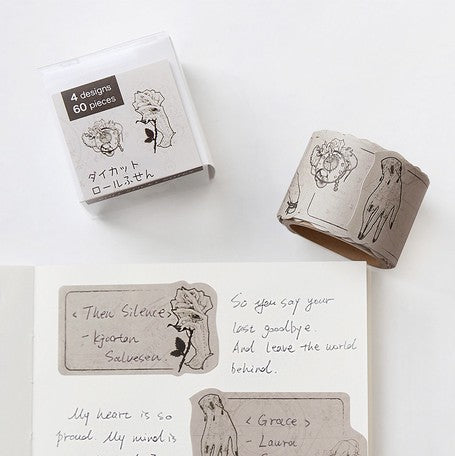 4 designs
60 pieces
ダイカット
ロールふせん
< Then Silence>
- Kjartan
Salvesen.
So you say your
last goodbye.
And leave the world
behind.
My heart is so
proud. My mind is
< Grace >
- Laura